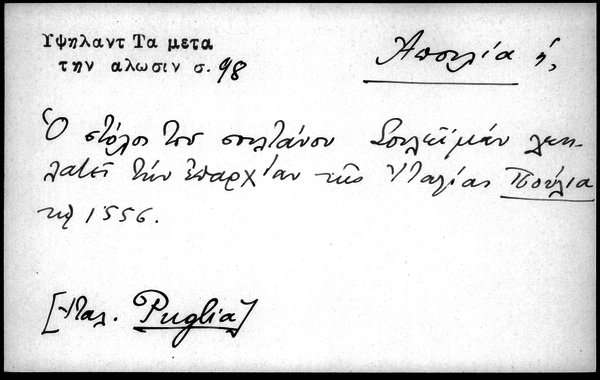 Υψηλαντ Τα μετα
την αλωσιν σ. 98
Ἀπουλία ἡ,
Ὁ στόλος τοῦ σουλτάνου Σουλεϊμάν λεη-
λατεῖ τήν ἐπαρχίαν τῆς Ἰταλίας Πούλια
τῷ 1556.
[Ἰταλ. Puglia]